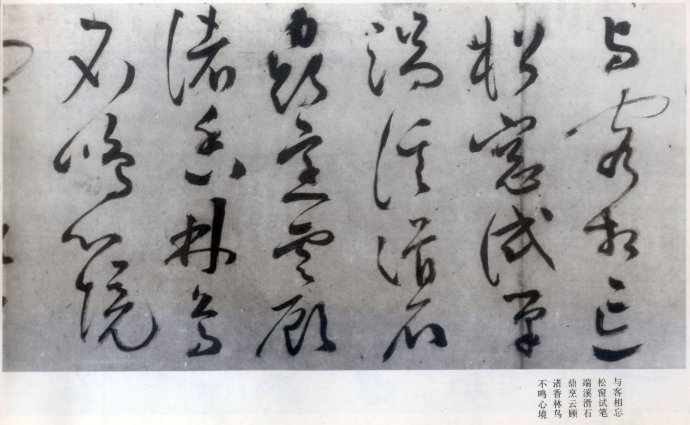 与客相忘
松窗试笔
端溪滑石
鼎烹云顾
渚香林鸟
不鸣心境
与客相忘
松窗试笔
端溪滑石
鼎烹云顾
渚香林鸟
不鸣心境